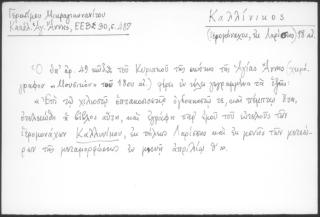 Γερασίμου Μικραγιαννανίτου
Καταλ. Ἁγ. Ἄννης, ΕΕΒΣ 30, σ. 487
Καλλίνικος
(ἱερομόναχος, ἐκ Λαρίσης) 18 αἰ.
Ὁ ὑπ' ἀρ. 49 κῶδιξ τοῦ Κυριακοῦ τῆς σκήτης τῆς Ἁγίας Ἄννης (χειρό
γραφον 18ου αἰ) φέρει ἐν τέλει γεγραμμένα τὰ ἑξῆς:
«Ἐπὶ τῷ χιλιοστῷ ἑπτακοσιοστῷ ὀγδοηκοστῷ τε, καὶ πέμπτῳ ἔτει,
ἐτελειώθη ἡ βίβλος αὕτη, καὶ ἐγράφη παρ' ἐμοῦ τοῦ εὐτελοῦς
ἱερομονάχου Καλλινίκου, ἐκ πόλεως Λαρίσσης καὶ ἐκ μονῆς τῶν μετεώ
ρων τῆς μεταμορφώσεως ἐν μηνὶ ἀπριλίῳ θ'».